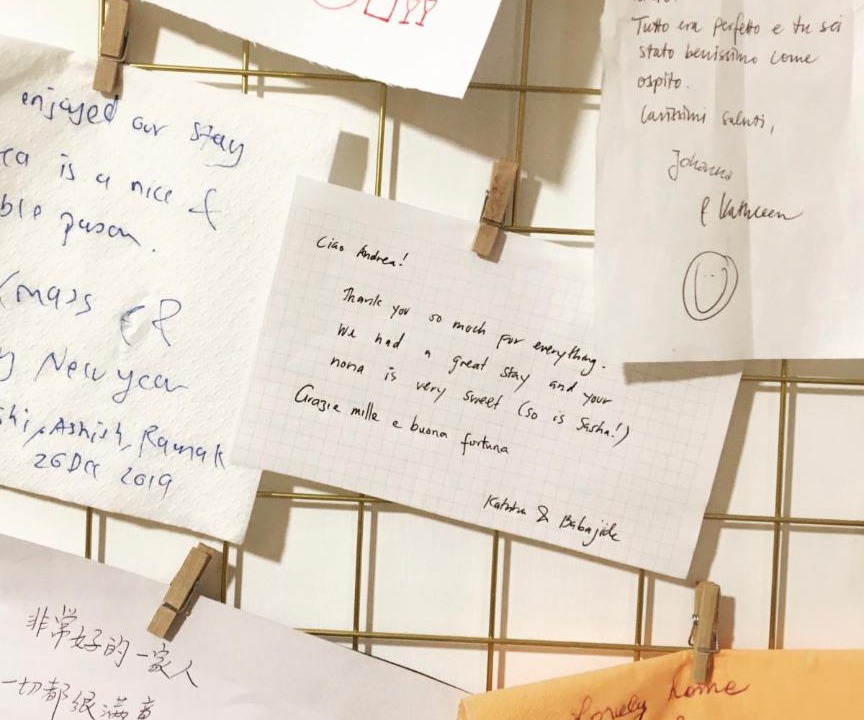 enjoyed our stay
is a nice &
ble person.
Xmass &
New year
shi, Ashish, Raunak
26 Dec 2019
Ciao Andrea!
Thank you so much for everything.
We had a great stay and your
nona is very sweet (so is Sasha!)
Grazie mille e buona fortuna
Katrina & Babajide
Tutto era perfetto e tu sei
stato benissimo come
ospito.
Carissimi saluti,
Johanna
& Kathleen
非常好的一家人
一切都很满意
Lovely home